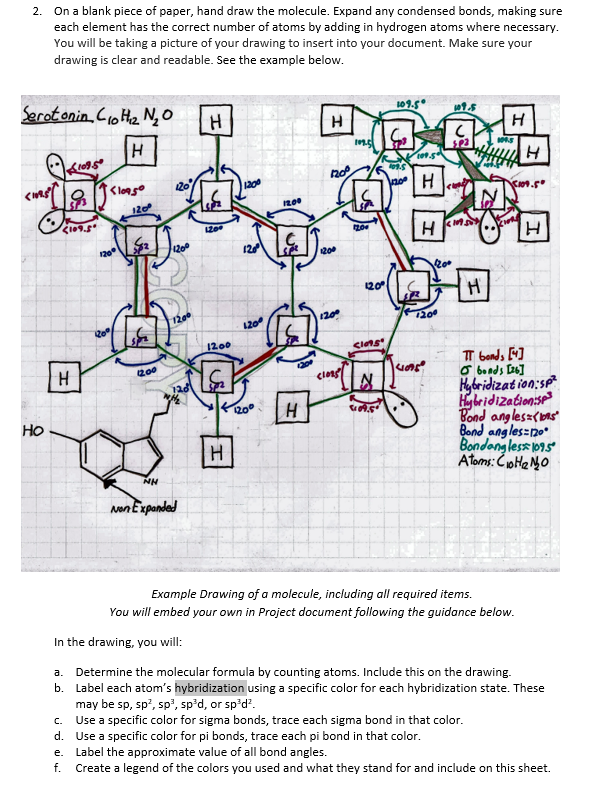 2. On a blank piece of paper, hand draw the molecule. Expand any condensed bonds, making sure
each element has the correct number of atoms by adding in hydrogen atoms where necessary.
You will be taking a picture of your drawing to insert into your document. Make sure your
drawing is clear and readable. See the example below.
Serotonin C10 H12 N2O
109.5° 109.5
H H H
H H
<109.5° 109.5
<109.5 O <109.5° 120° C 120° 120° C 120° H N <109.5°
sp3 sp2 sp2 sp3
<109.5° 120° 120° 120° 120° H H
120° C 120° 120° C 120° 120°
sp2 sp2 120° C H
120° sp2 120°
120° C 120° 120° C 120°
sp2 1200 sp2 <109.5°
H 1200 C <109.5° N <109.5°
sp2 120°
120° H <109.5°
NH2
HO H
NH
Non Expanded
π bonds [4]
σ bonds [26]
Hybridization:sp²
Hybridization:sp³
Bond angles=<109.5°
Bond angles=120°
Bondangles≈109.5°
Atoms: C10H12N2O
Example Drawing of a molecule, including all required items.
You will embed your own in Project document following the guidance below.
In the drawing, you will:
a. Determine the molecular formula by counting atoms. Include this on the drawing.
b. Label each atom's hybridization using a specific color for each hybridization state. These
may be sp, sp², sp³, sp³d, or sp³d².
c. Use a specific color for sigma bonds, trace each sigma bond in that color.
d. Use a specific color for pi bonds, trace each pi bond in that color.
e. Label the approximate value of all bond angles.
f. Create a legend of the colors you used and what they stand for and include on this sheet.